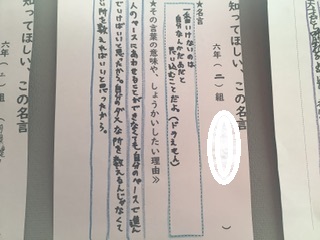 知ってほしい、この名言
六年(二)組
★名言
一番いけないのは
自分なんかだめだと
思い込むことだよ(ドラえもん)
★その言葉の意味や、しょうかいしたい理由≫
人のペースにあわせることができなくても、自分のペースで進ん
でいけばいいと思ったから。自分のダメな所を数えるんじゃなくて
いい所を数えればいいと思ったから。
知ってほしい、この名
六年(二)組